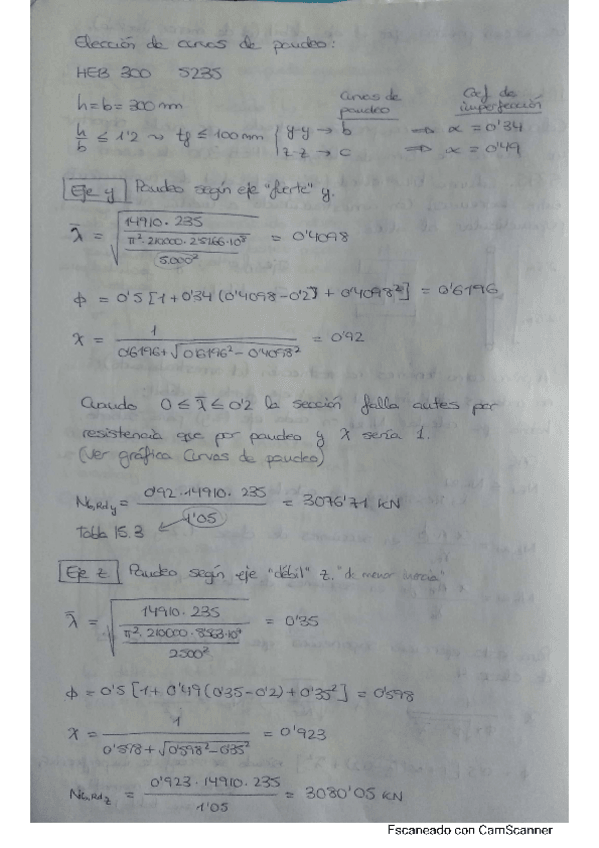 Elección de curvas de pandeo:
HEB 300 S235
h = b = 300 mm
Curvas de pandeo
Coef. de imperfección
h/b ≤ 1'2 ~> tf ≤ 100 mm { y-y → b ⇒ α = 0'34
z-z → c ⇒ α = 0'49
Eje y Pandeo según eje "fuerte" y.
λ̄ = √(14910 · 235 / (π² · 210000 · 2'5166·10⁸ / 5.000²)) = 0'4098
ϕ = 0'5 [1 + 0'34 (0'4098 - 0'2) + 0'4098²] = 0'6196
χ = 1 / (0'6196 + √(0'6196² - 0'4098²)) = 0'92
Cuando 0 ≤ λ̄ ≤ 0'2 la sección falla antes por
resistencia que por pandeo y χ sería 1.
(Ver gráfica Curvas de pandeo)
Nb,Rdy = 0'92 · 14910 · 235 / 1'05 = 3076'71 KN
Tabla 15.3
Eje z Pandeo según eje "débil" z. "de menor inercia"
λ̄ = √(14910 · 235 / (π² · 210000 · 8563·10⁴ / 2500²)) = 0'35
ϕ = 0'5 [1 + 0'49 (0'35 - 0'2) + 0'35²] = 0'598
χ = 1 / (0'578 + √(0'598² - 0'35²)) = 0'923
Nb,Rdz = 0'923 · 14910 · 235 / 1'05 = 3080'05 KN
Escaneado con CamScanner